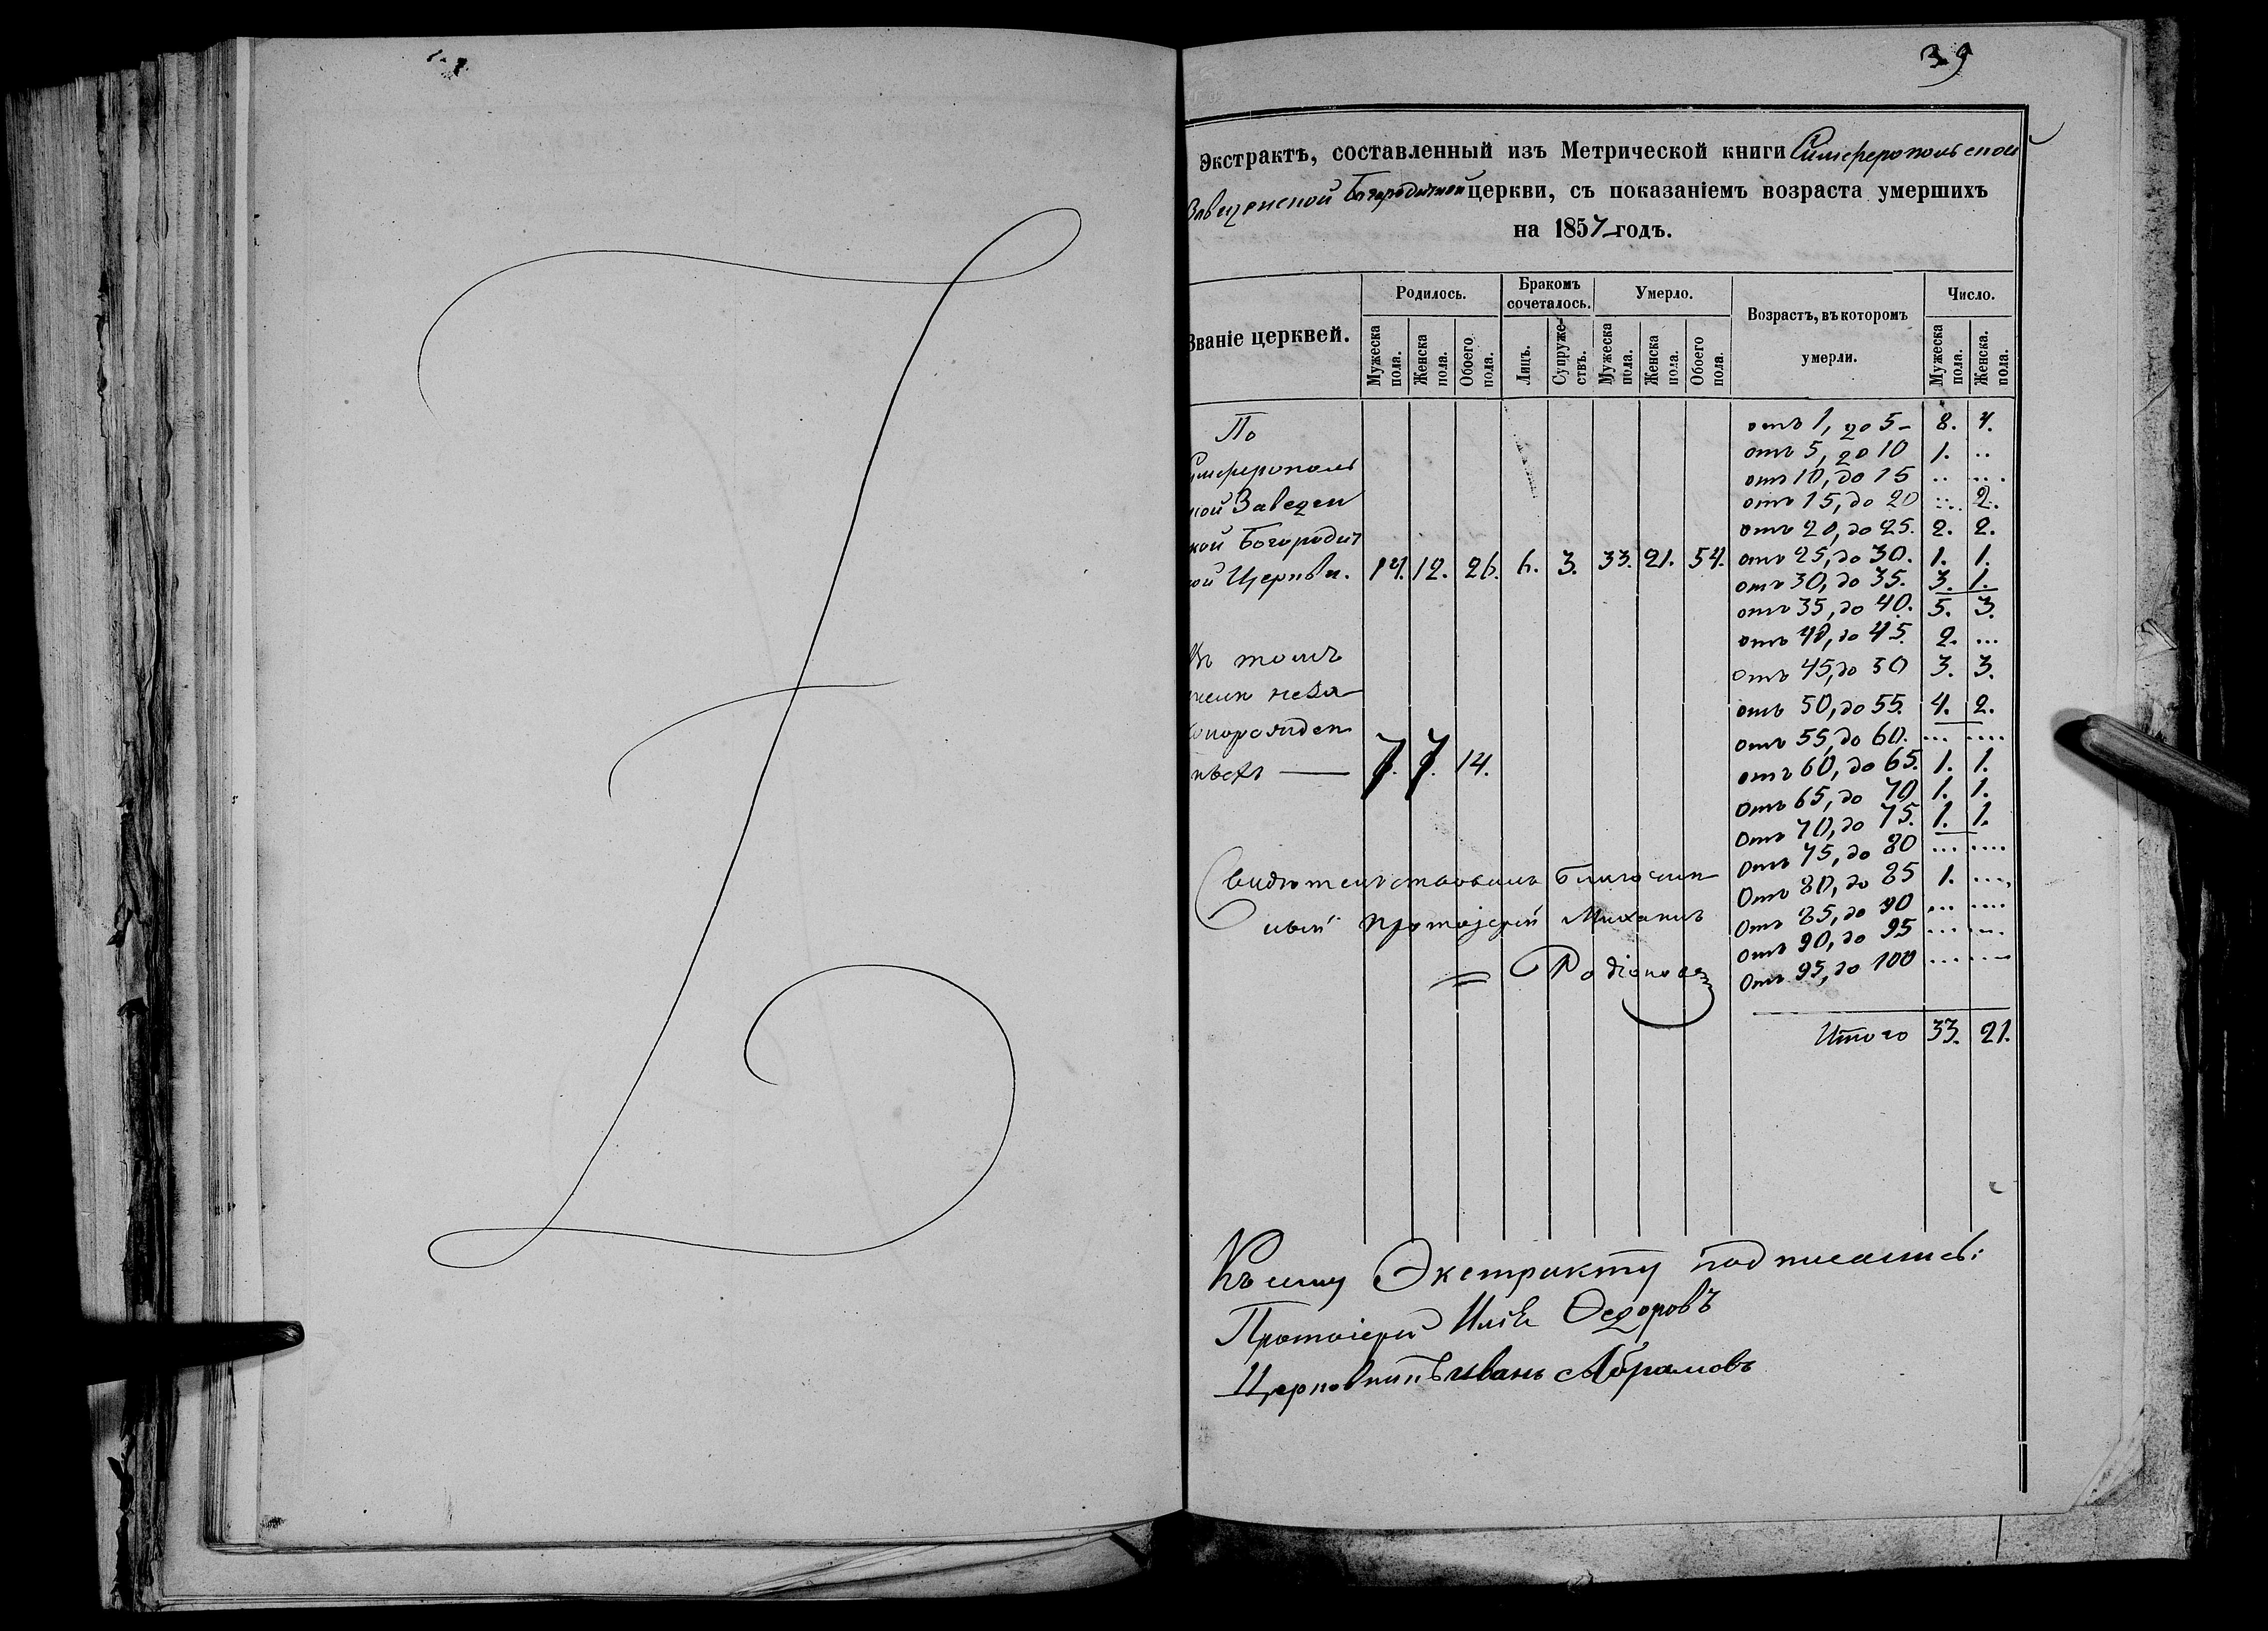 39
Экстрактъ, составленный изъ Метрической книги Симферопольской
Заведенской Богородичной церкви, съ показаніемъ возраста умершихъ
на 1857 годъ.
Званіе церквей.
Родилось.
Бракомъ сочеталось.
Умерло.
Возрастъ, въ которомъ умерли.
Число.
Мужеска пола.
Женска пола.
Обоего пола.
Лицъ.
Супружествъ.
Мужеска пола.
Женска пола.
Обоего пола.
Мужеска пола.
Женска. пола.
По
имферополь
кой Заведен
кой Богородич
ой Церкви. 14. 12. 26. 6. 3. 33. 21. 54.
отъ 1, до 5 – 8. 4.
отъ 5, до 10 1. ..
отъ 10, до 15 .. ...
отъ 15, до 20 ... 2.
отъ 20, до 25. 2. 2.
отъ 25, до 30. 1. 1.
отъ 30, до 35. 3. 1.
отъ 35, до 40. 5. 3.
отъ 40, до 45. 2. ...
отъ 45, до 50 3. 3.
отъ 50, до 55. 4. 2.
отъ 55, до 60. ... ....
отъ 60, до 65. 1. 1.
отъ 65, до 70 1. 1.
отъ 70, до 75. 1. 1.
отъ 75, до 80 ... ....
отъ 80, до 85 1. ....
отъ 85, до 90 ... ....
отъ 90, до 95 ... ....
отъ 95, до 100 ... ....
Итого 33. 21.
Въ томъ
числѣ неза
конорожден
ныхъ — 7. 7. 14.
Свидѣтельствовалъ Благочин
ный Протоіерей Михаилъ
= Родіоновъ
Къ сему Экстракту подписались:
Протоіерей Илія Ѳедоровъ
Церковникъ Иванъ Абрамовъ